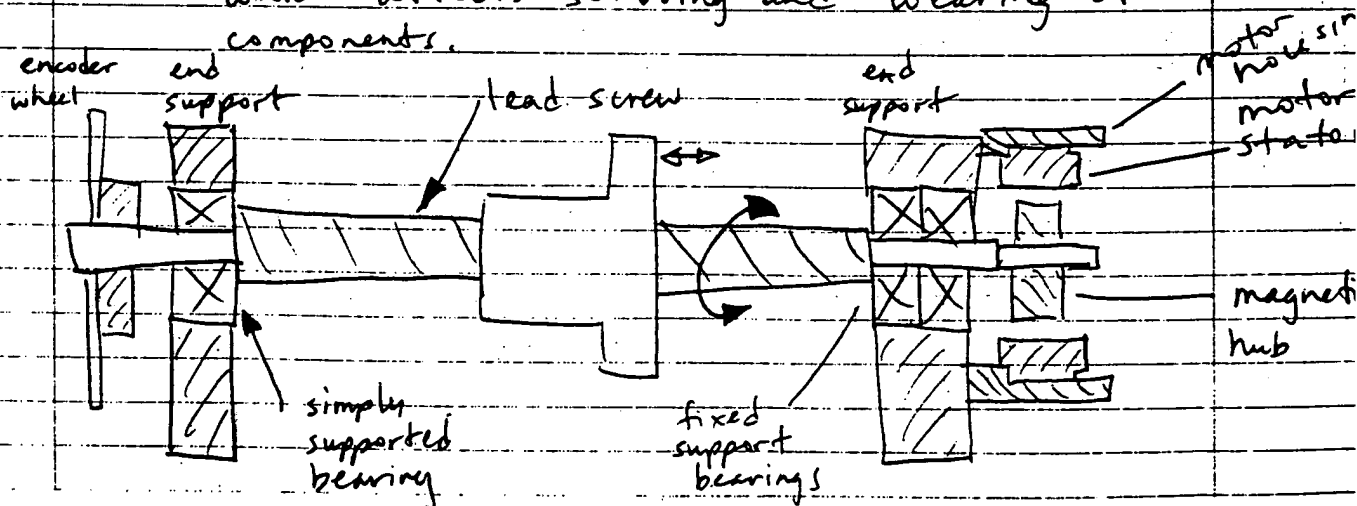 components.
encoder
wheel
end
support
lead screw
end
support
motor
motor
stato
magneti
hub
simply
supported
bearing
fixed
support
bearings